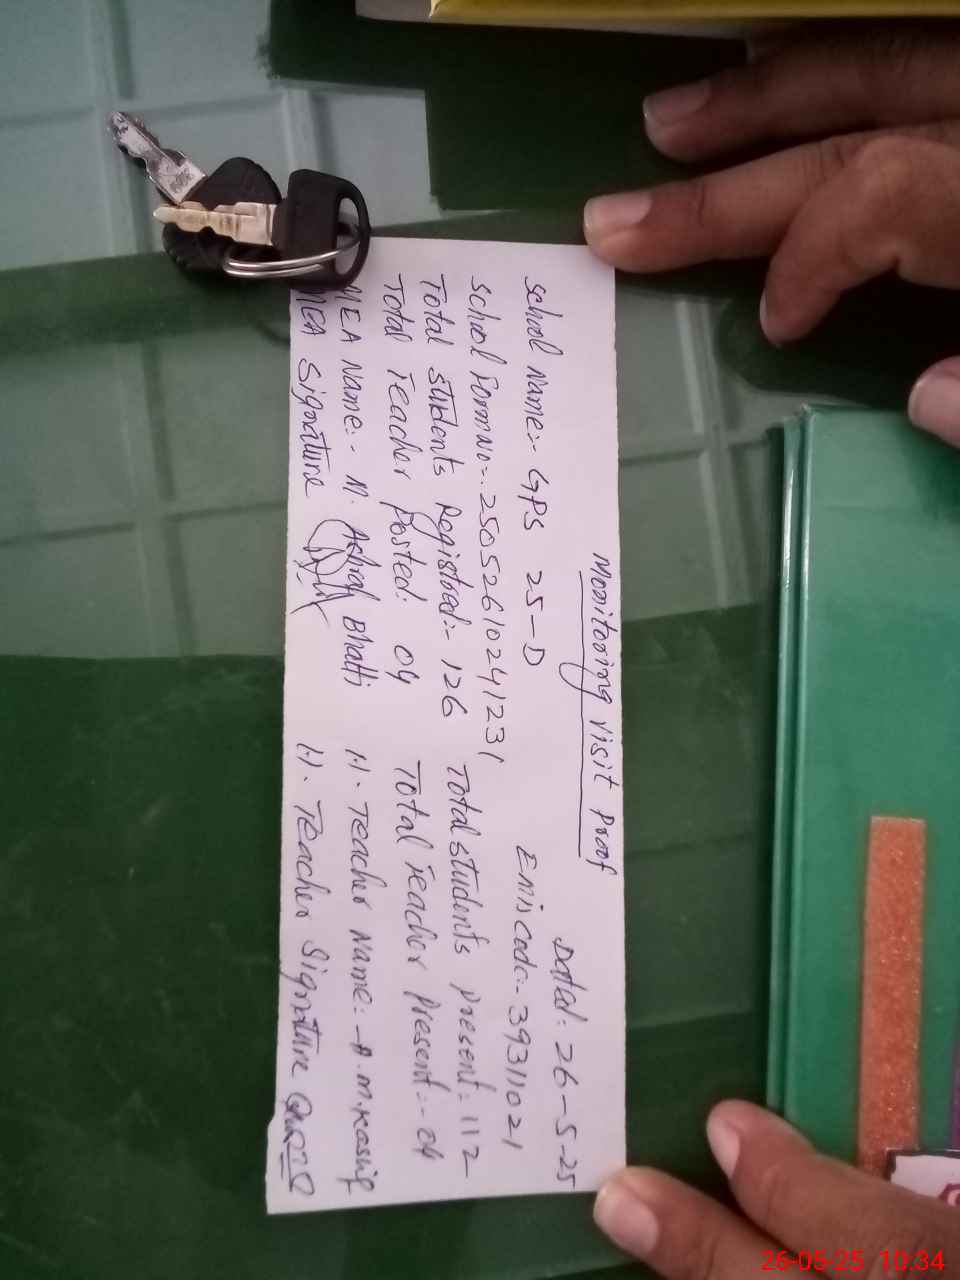 Monitoring visit Proof
Dated: 26-5-25
School Name:- GPS 25-D Emis Code:- 39311021
School Form No:- 25052610241231
Total Students Registered:- 126 Total students present:- 112
Total Teacher Posted: 04 Total Teacher Present:- 04
MEA Name:- M. Ashraf Bhatti H. Teacher Name:- A.M.Kashif
MEA Signature H. Teacher Signature
26-05-25 10:34